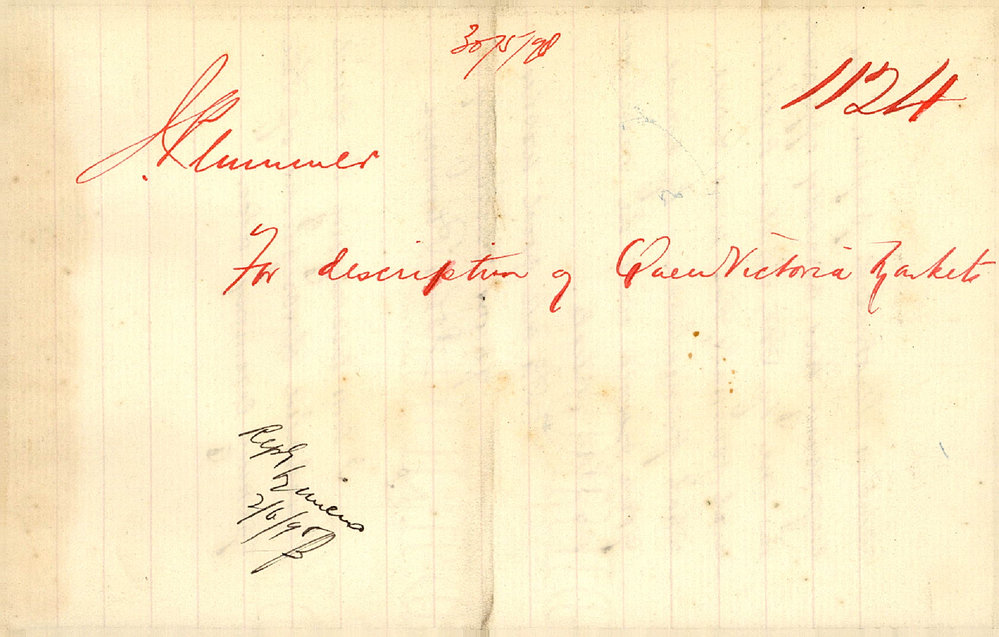 30/5/98
1124
J. Plummer
For description of Queen Victoria Markets
Reply
2/6/98